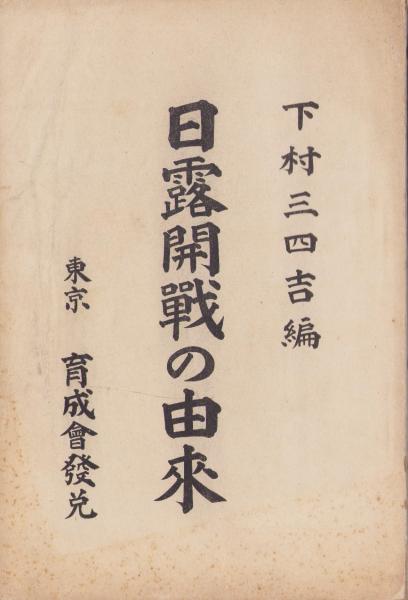 下村三四吉編
日露開戰の由來
東京 育成會發兌